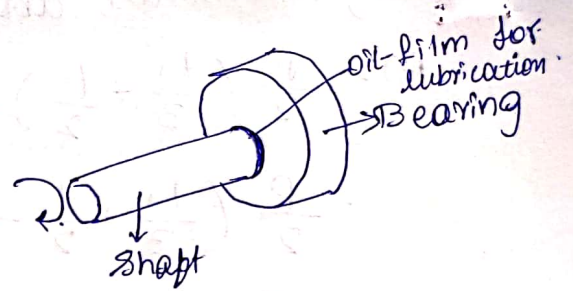 oil-film for
lubrication.
Bearing
Shaft